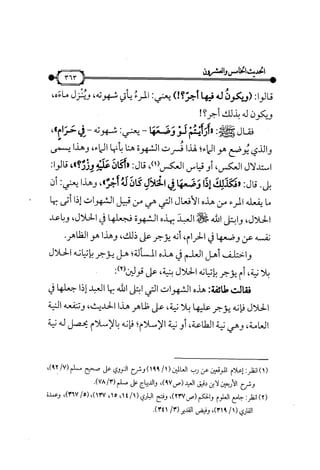 الحديث الخامس والعشرون
٣٦٣
قالوا: (ويكون له فيها أجر؟!) يعني: المرء يأتي شهوته، ويُنزل ماءه،
ويكون له بذلك أجر؟!
فقال ﷺ: «أَرَأَيْتُمْ لَوْ وَضَعَهَا - يعني: شهوته - فِي حَرَامٍ»،
والذي يُوضع هو الماء؛ لهذا فُسرت الشهوة هنا بأنها الماء، وهذا يسمى
استدلال العكس، أو قياس العكس(١)، قال: «أَكَانَ عَلَيْهِ وِزْرٌ؟»، قالوا:
بلى. قال: «فَكَذَلِكَ إِذَا وَضَعَهَا فِي الْحَلَالِ كَانَ لَهُ أَجْرٌ»، وهذا يعني: أن
ما يفعله المرء من هذه الأفعال التي هي من قبيل الشهوات إذا أتى بها
الحلال، وابتلى الله ﷻ العبدَ بهذه الشهوة فجعلها في الحلال، وباعد
نفسه عن وضعها في الحرام، أنه يؤجر على ذلك، وهذا هو الظاهر.
واختلف أهل العلم في هذه المسألة؛ هل يؤجر بإتيانه الحلال
بلا نية، أم يؤجر بإتيانه الحلال بنية، على قولين(٢):
فقالت طائفة: هذه الشهوات التي ابتلى الله بها العبد إذا جعلها في
الحلال فإنه يؤجر عليها بلا نية، على ظاهر هذا الحديث، وتنفعه النية
العامة، وهي نية الطاعة، أو نية الإسلام؛ فإنه بالإسلام يحصل له نية
(١) انظر: إعلام الموقعين عن رب العالمين (١/ ١٩٩) وشرح النووي على صحيح مسلم (٧/ ٩٢)،
وشرح الأربعين لابن دقيق العيد (ص٩٧)، والديباج على مسلم (٣/ ٧٨).
(٢) انظر: جامع العلوم والحكم (ص٢٣٧)، وفتح الباري (١/ ١٤، ١٥، ١٣٧)، (٥/ ٣٦٧)، وعمدة
القاري (١/ ٣١٩)، وفيض القدير (٣/ ٣٤١).